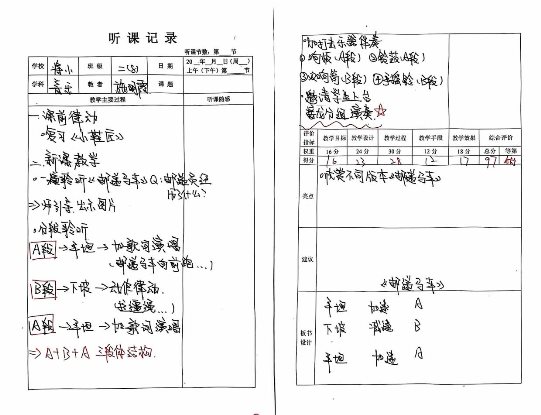 听课记录
听课节数：第 节
学校 小 班级 二(5) 日期 20__年__月__日（周__）
上午（下午）第__节
学科 音乐 教者 课题
教学主要过程 听课随感
一.课前律动
·复习《小鞋匠》
二.新课教学
·一遍聆听《邮递马车》Q:邮递员在
⇒师引导.出示图片
·分段聆听
A段→平坦→加歌词演唱
(邮递马车向前跑...)
B段→下坡→动作律动.
A段→平坦→加歌词演唱
⇒A+B+A 三段体结构.
·加打击乐器伴奏
①响板(A段) ②铃鼓(A段)
③沙响筒(B段) ④串铃(B段)
·邀请学生上台
分组演奏☆
评价指标 教学目标 教学设计 教学过程 教学手段 教学效果 综合评价
权重 16分 24分 30分 12分 18分 总分 等第
得分 16 23 28 12 17 97
亮点
·欣赏不同版本《邮递马车》
建议
板书设计
《邮递马车》
平坦 加速 A
下坡 减速 B
平坦 加速 A